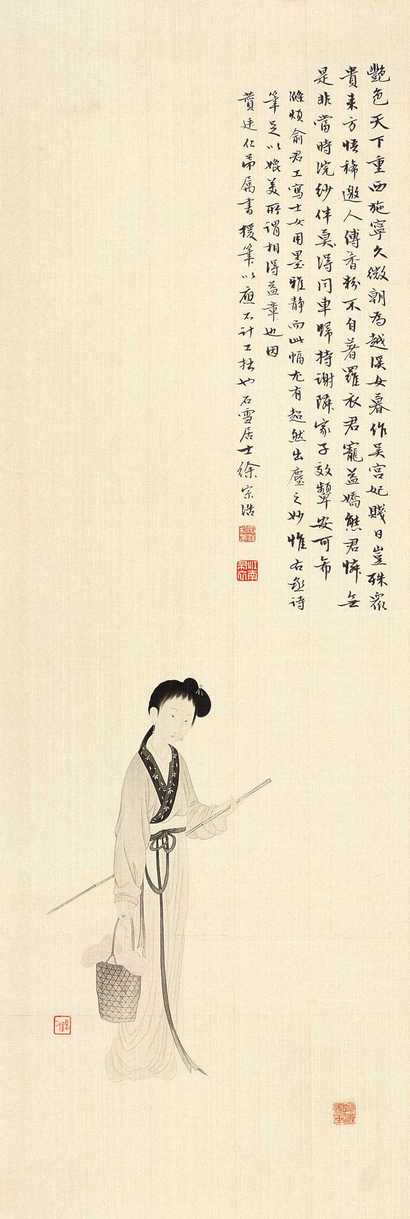 艷色天下重西施寧久微朝為越溪女暮作吳宮妃賤日豈殊眾
貴來方悟稀邀人傅香粉不自著羅衣君寵益嬌態君憐無
是非當時浣紗伴莫得同車歸持謝隣家子效顰安可希
滌煩俞君工寫士女用墨雅靜而此幅尤有超然出塵之妙惟右丞詩
筆足以媲美所謂相得益章也因
仁弟属書援筆以應不計工拙也石雪居士徐宗浩